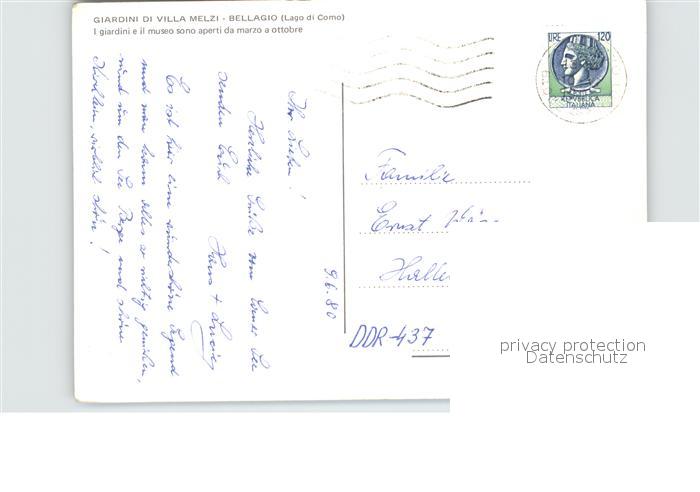 GIARDINI DI VILLA MELZI - BELLAGIO (Lago di Como)
I giardini e il museo sono aperti da marzo a ottobre
LIRE 120
REPUBBLICA
ITALIANA
9.6.80
Ihr Lieben!
Herzliche Grüße vom Comer See
senden Euch
Hans +
Es ist hier eine wunderschöne Gegend
und man kann alles so richtig genießen,
rund um den See Berge und schöne
schön!
Familie
Ernst
Halle
DDR-437
privacy protection
Datenschutz